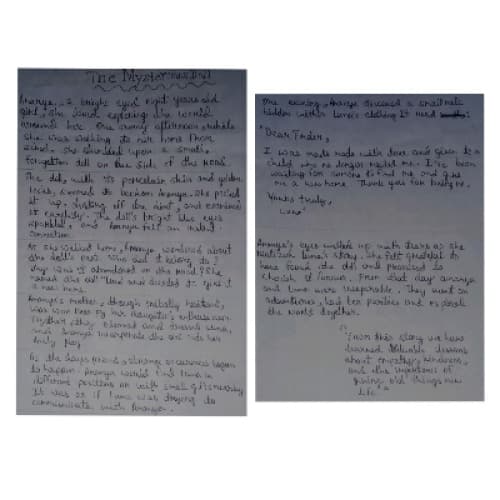 The Mysterious Doll
Ananya, a bright eyed eight years old
girl, she loved exploring the world
around her. One sunny afternoon, while
she was walking to her home from
school she stumbled upon a small,
forgotten doll on the side of the road.
The doll, with its porcelain skin and golden
locks, seemed to beckon Ananya. She picked
it up, dusting off the dirt, and examined
it carefully. The doll's bright blue eyes
sparkled, and Ananya felt an instant
connection.
As she walked home, Ananya wondered about
the doll's past. Who did it belong to?
Why was it abandoned on the road? She
named the doll "Luna" and decided to give it
a new home.
Ananya's mother, though initially hesitant,
was won over by her daughter's enthusiasm.
Together, they cleaned and dressed Luna,
and Ananya incorporate the doll into her
daily play.
As the days passed, strange occurences began
to happen. Ananya would find Luna in
different positions or with small gifts nearby.
It was as if Luna was trying to
communicate with Ananya.
One evening, Ananya discovered a small note
hidden within Luna's clothing It read
"Dear Finder,
I was made with love and given to a
child who no longer needed me. I've been
waiting for someone to find me and give
me a new home. Thank you for finding me.
Yours truly,
Luna"
Ananya's eyes welled up with tears as she
Luna's story. She felt grateful to
have found the doll and promised to
cherish it forever. From that day Ananya
and Luna were inseparable. They went on
adventures, had tea parties and explored
the world together.
"From this story we have
learned valuable lessons
about empathy, kindness,
and the importance of
giving old things new
life"